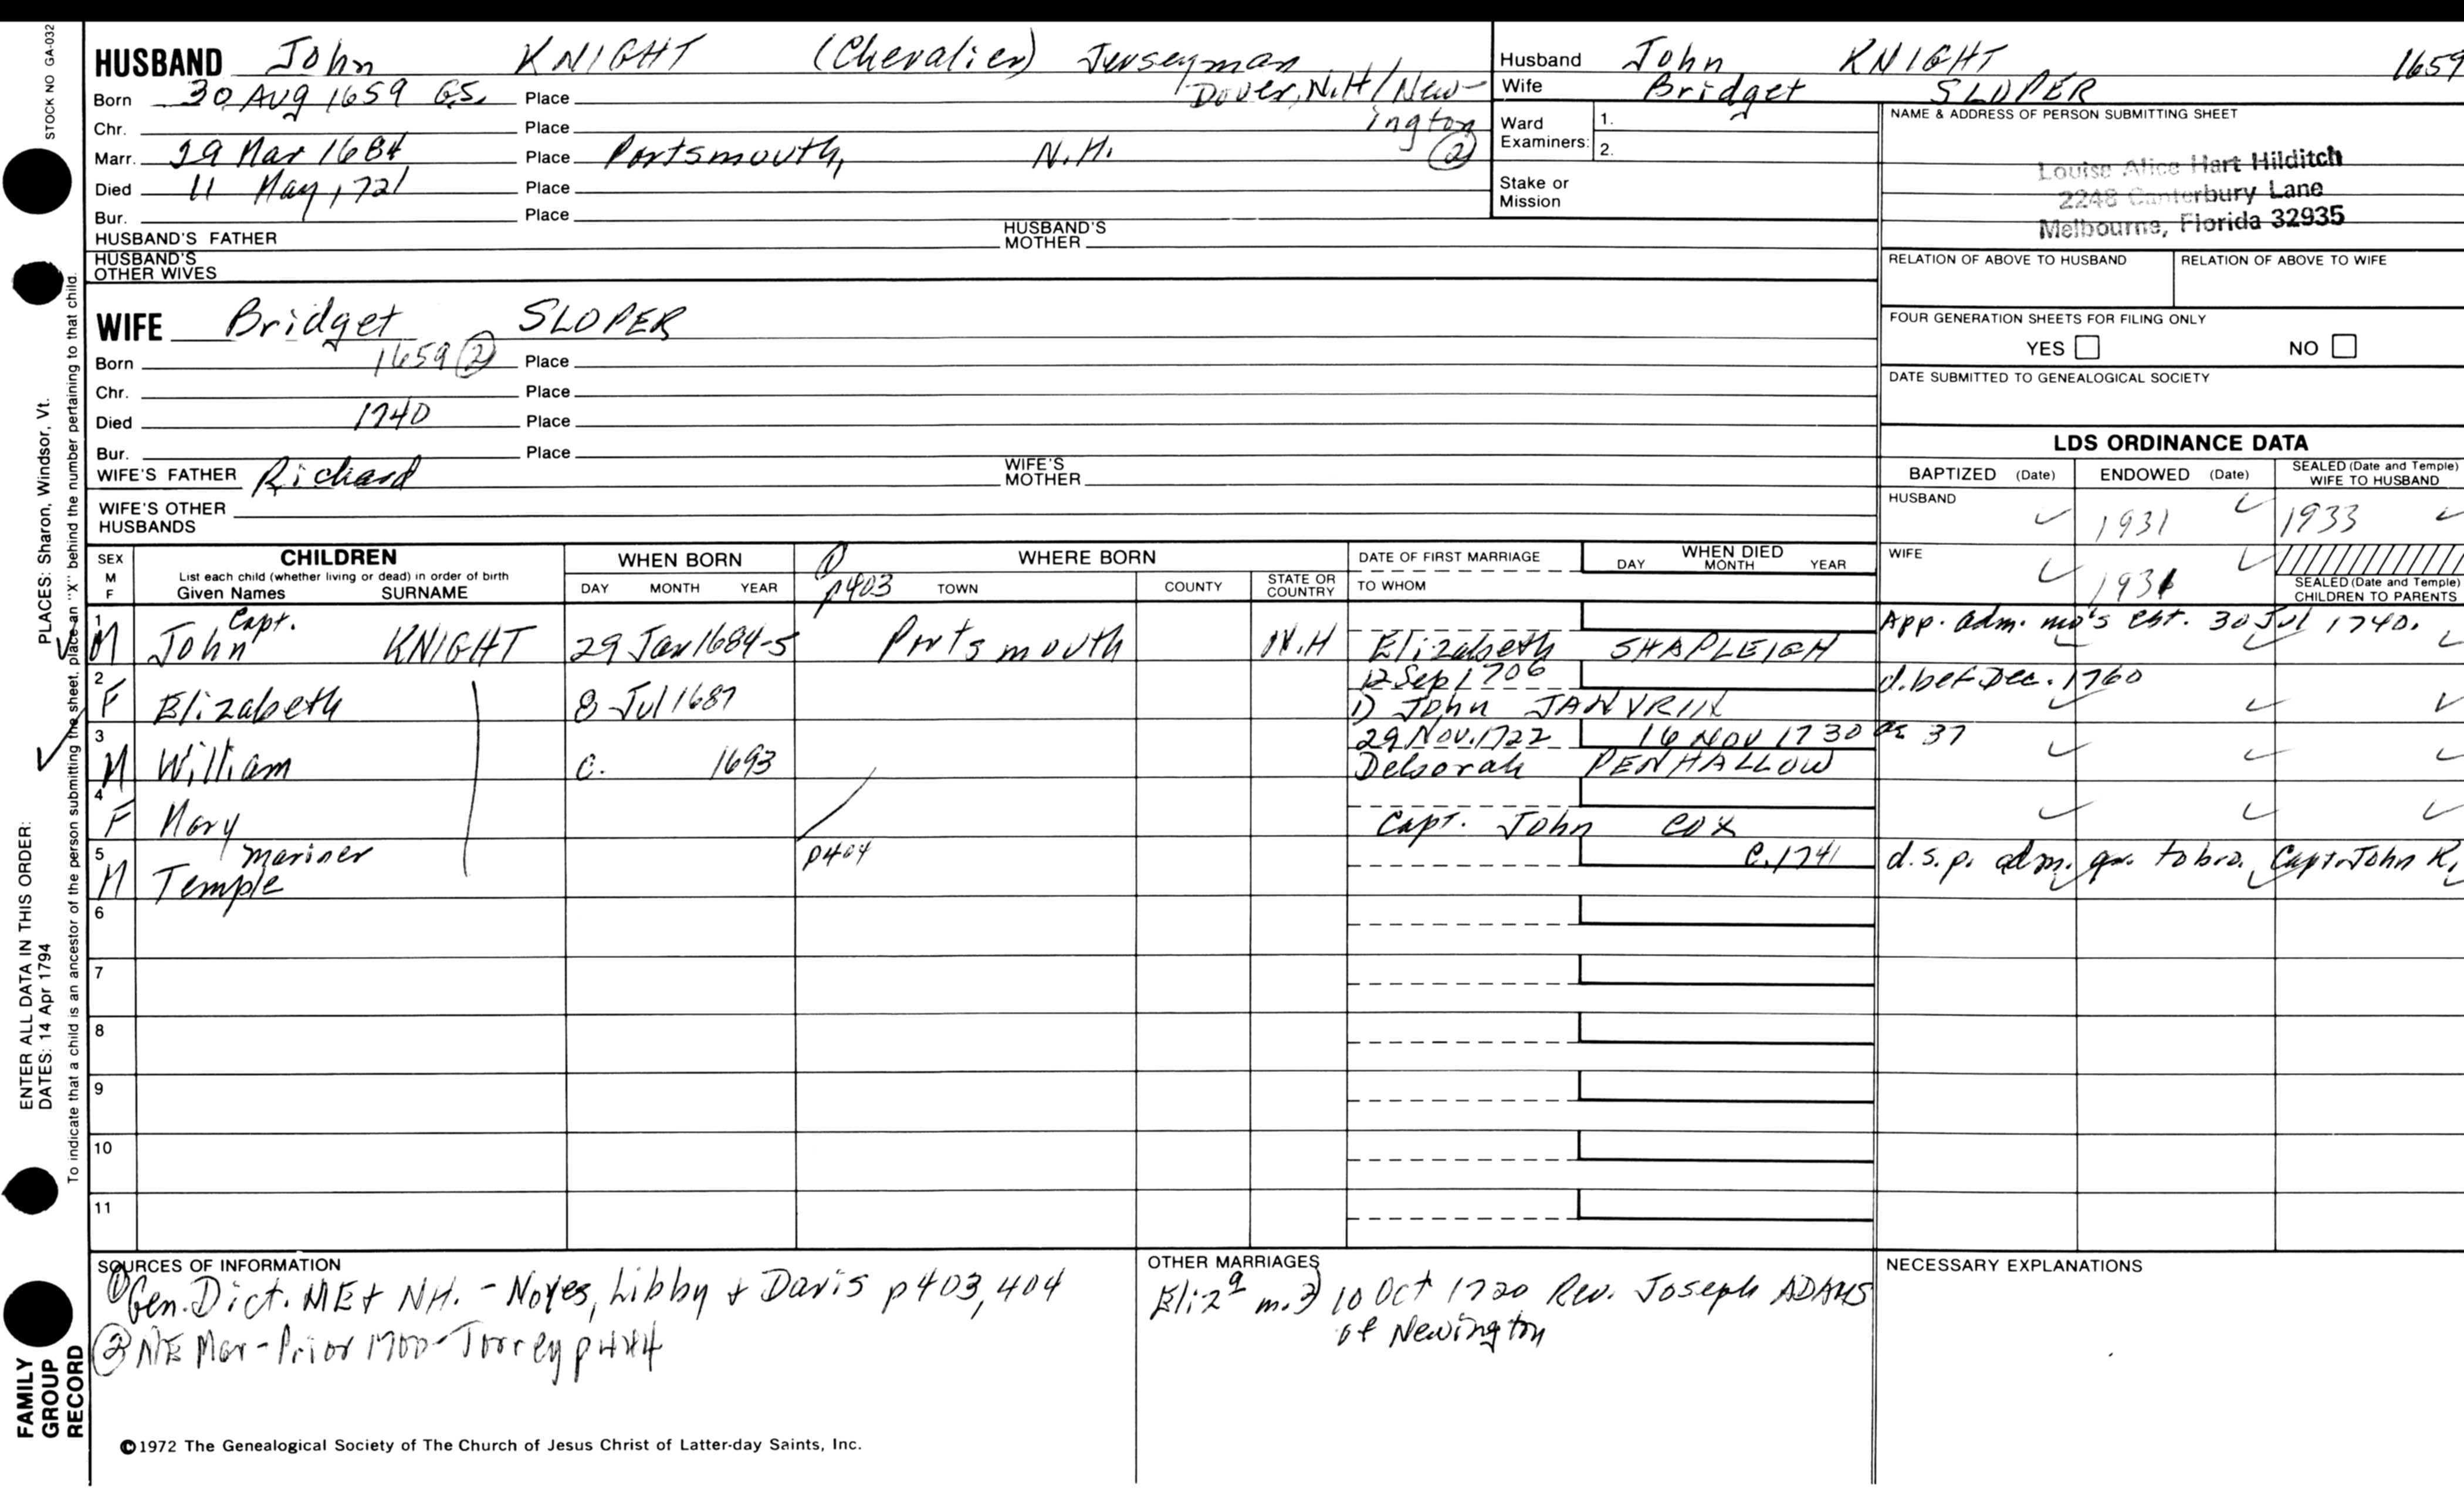 STOCK NO GA-032
HUSBAND John KNIGHT (Chevalier) Jerseyman
Born 30 Aug 1659 G.S. Place Dover, N.H/New-
Chr. Place ington
Marr. 29 Mar 1684 Place Portsmouth, N.H. (2)
Died 11 May 1721 Place
Bur. Place
HUSBAND'S FATHER HUSBAND'S MOTHER
HUSBAND'S OTHER WIVES
Husband John KNIGHT 1659
Wife Bridget SLOPER
Ward Examiners: 1.
2.
Stake or Mission
NAME & ADDRESS OF PERSON SUBMITTING SHEET
Louise Alice Hart Hilditch
2248 Canterbury Lane
Melbourne, Florida 32935
RELATION OF ABOVE TO HUSBAND RELATION OF ABOVE TO WIFE
FOUR GENERATION SHEETS FOR FILING ONLY
YES NO
DATE SUBMITTED TO GENEALOGICAL SOCIETY
WIFE Bridget SLOPER
Born 1659 (2) Place
Chr. Place
Died 1740 Place
Bur. Place
WIFE'S FATHER Richard WIFE'S MOTHER
WIFE'S OTHER HUSBANDS
LDS ORDINANCE DATA
BAPTIZED (Date) ENDOWED (Date) SEALED (Date and Temple) WIFE TO HUSBAND
HUSBAND ✓ 1931 ✓ 1933 ✓
WIFE ✓ 1931 ✓
SEALED (Date and Temple) CHILDREN TO PARENTS
SEX M F CHILDREN WHEN BORN (1) WHERE BORN DATE OF FIRST MARRIAGE WHEN DIED
List each child (whether living or dead) in order of birth
Given Names SURNAME DAY MONTH YEAR p403 TOWN COUNTY STATE OR COUNTRY TO WHOM DAY MONTH YEAR
1 Capt. App. adm. mo's est. 30 Jul 1740.
M John KNIGHT 29 Jan 1684-5 Portsmouth N.H Elizabeth SHAPLEIGH
2 12 Sep 1706 d. bef Dec. 1760
F Elizabeth 8 Jul 1687 1) John JANVRIN
3 29 Nov. 1722 16 Nov 1730 ae 37
M William c. 1693 Deborah PENHALLOW
4
F Mary Capt. John COX
5 mariner p404 c. 1741 d.s.p. adm. gr. to bro. Capt. John K.
M Temple
6
7
8
9
10
11
SOURCES OF INFORMATION
(1) Gen. Dict. ME + NH. - Noyes, Libby + Davis p403, 404
(2) NE Mar - Prior 1700 - Torrey p444
OTHER MARRIAGES
Eliz a m. 2) 10 Oct 1720 Rev. Joseph ADAMS
of Newington
NECESSARY EXPLANATIONS
©1972 The Genealogical Society of The Church of Jesus Christ of Latter-day Saints, Inc.
FAMILY GROUP RECORD
ENTER ALL DATA IN THIS ORDER:
DATES: 14 Apr 1794
PLACES: Sharon, Windsor, Vt.
To indicate that a child is an ancestor of the person submitting the sheet, place an "X" behind the number pertaining to that child.